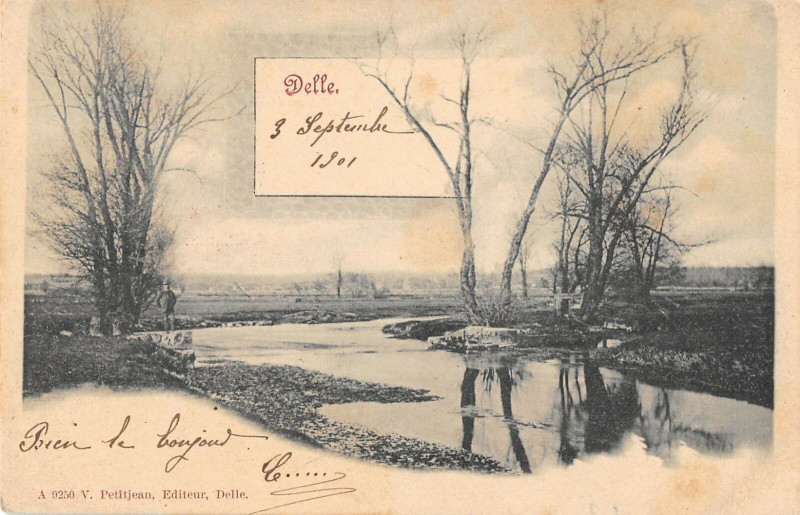 Delle,
3 Septembre
1901
Bien le bonjour
A 9250 V. Petitjean, Editeur, Delle.